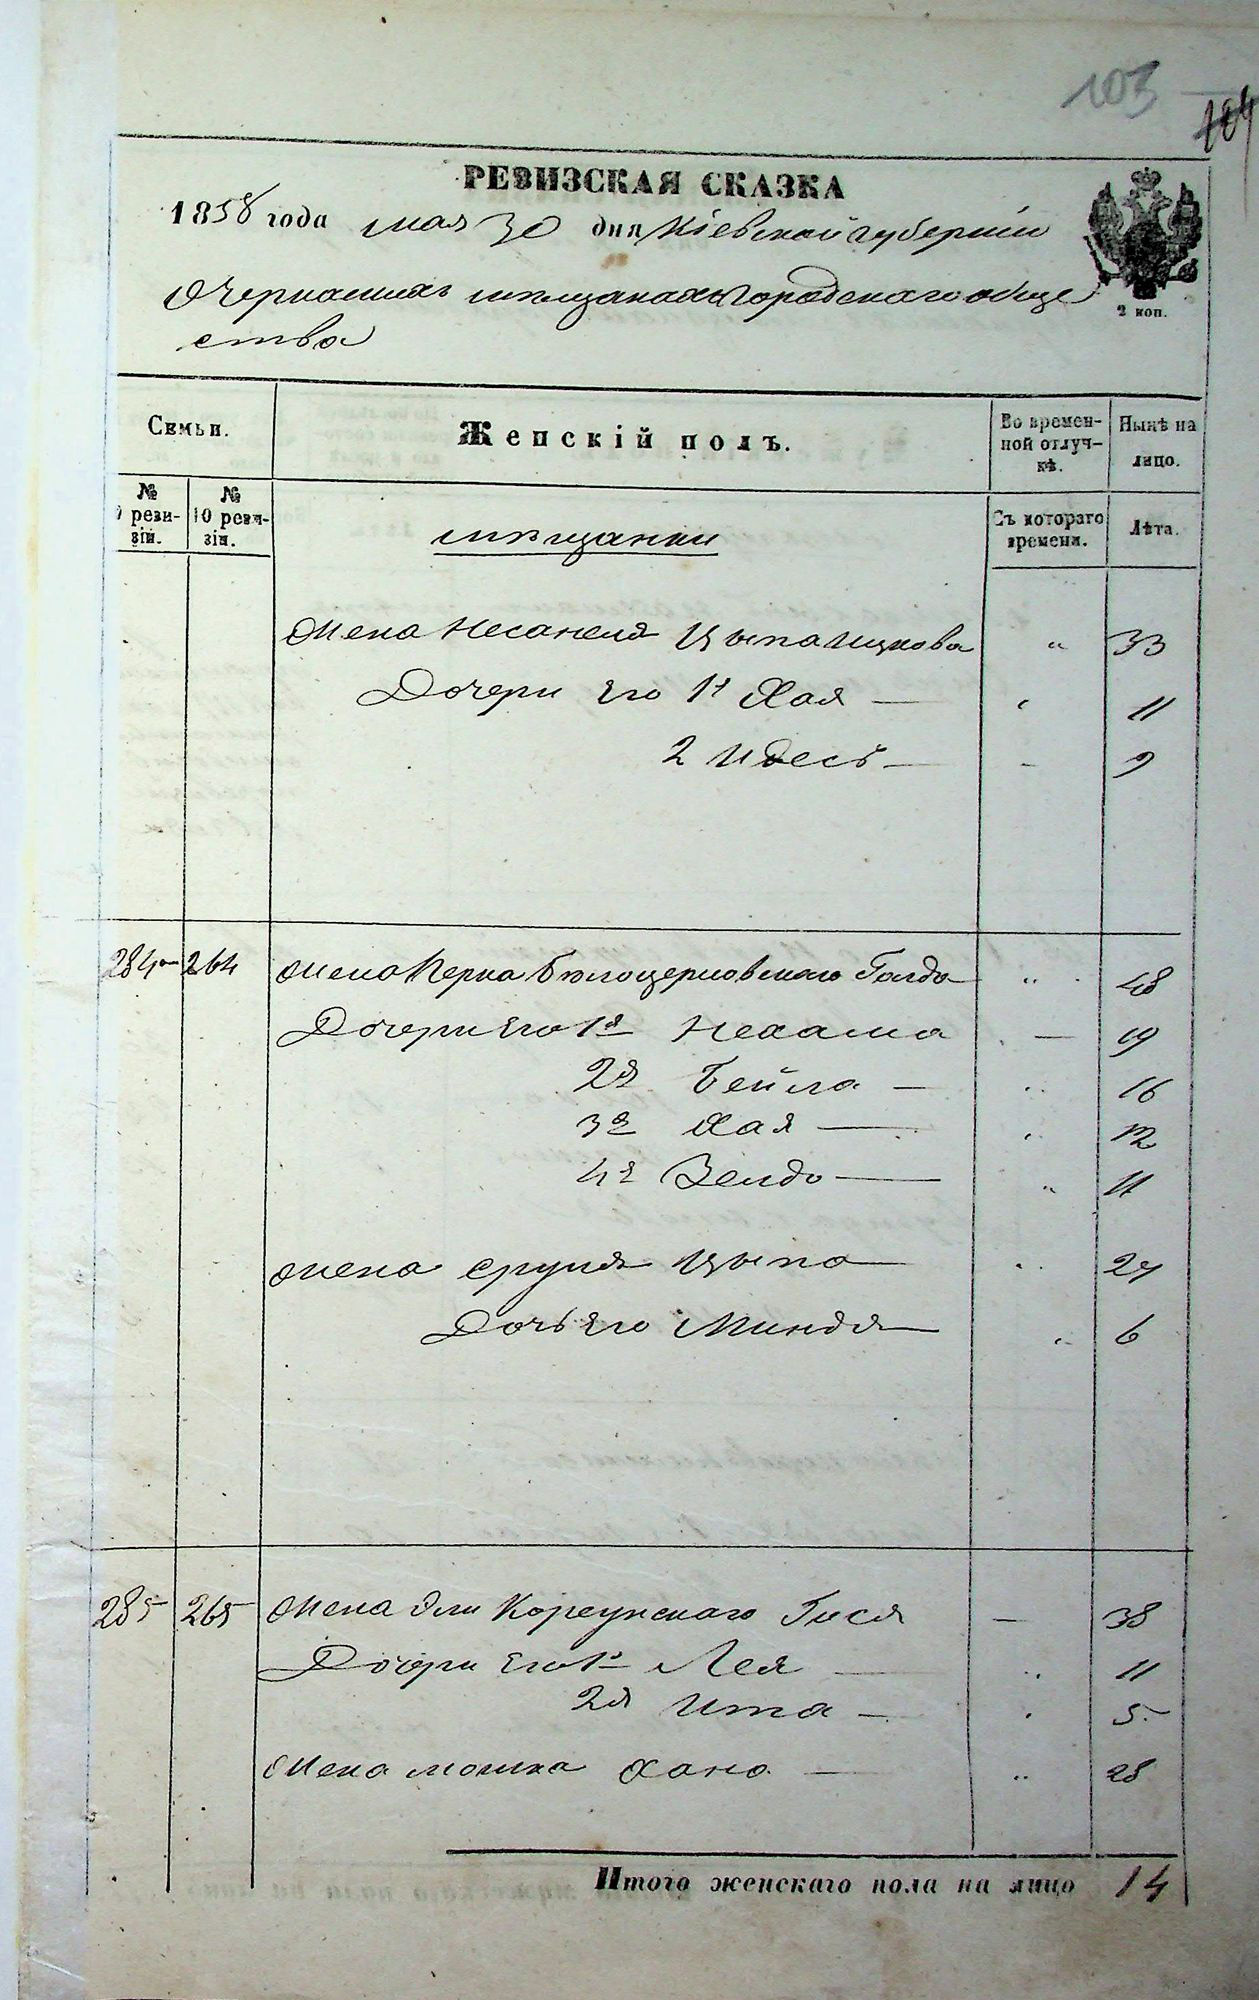 103
104
РЕВИЗСКАЯ СКАЗКА
1858 года мая 30 дня Кіевской губерніи
2 коп.
о Черкаскихъ мѣщанахъ Городскаго обще
ства
Семьи.
Женскій полъ.
Во времен-
ной отлуч-
кѣ.
Нынѣ на
лицо.
№
9 реви-
зіи.
№
10 реви-
зіи.
мѣщанки
Съ котораго
времени.
Лѣта.
Жена Несанеля Цыпа Ицкова " 33
Дочери Его 1я Хая — " 11
2 Идесъ — - 9
284 264 Жена Берка Бѣлоцерковскаго Голда " 48
Дочери Его 1я Нехама — 19
2я Бейла — " 16
3я Хая — " 12
4я Зелда — " 11
Жена Сруля Цыпа — " 27
Дочь Его Миндля — " 6
285 265 Жена Эли Корсунскаго Гися — 38
Дочери Его 1я Лея — " 11
2я Ита — " 5
Жена Мошка Хана — " 28
Итого женскаго пола на лицо 14